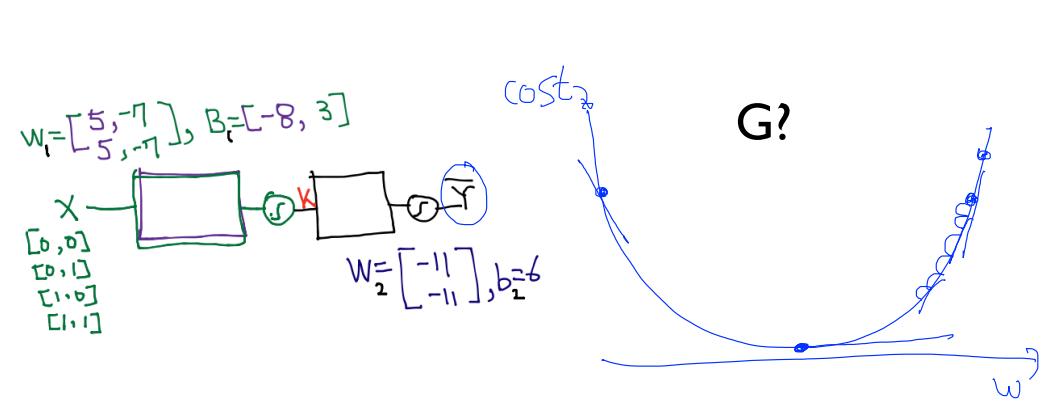 W₁=[5,-7
5,-7], B₁=[-8, 3]
X
[0,0]
[0,1]
[1,0]
[1,1]
S
K
S
Y̅
W₂=[-11
-11], b₂=6
cost
G?
W